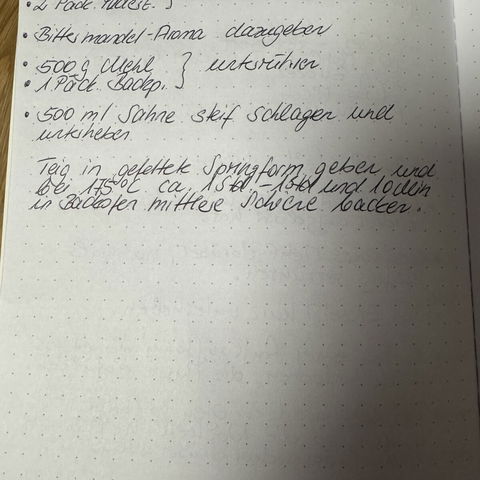 • 2 Päck. Pudest. }
• Bittermandel-Aroma dazugeben
• 500 g Mehl } unterrühren
• 1 Päck. Backp. }
• 500 ml Sahne steif schlagen und
unterheben.
Teig in gefettete Springform geben und
bei 175°C ca. 1 Std. - 1 Std und 10 Min
in Backofen mittlere Schiene backen.